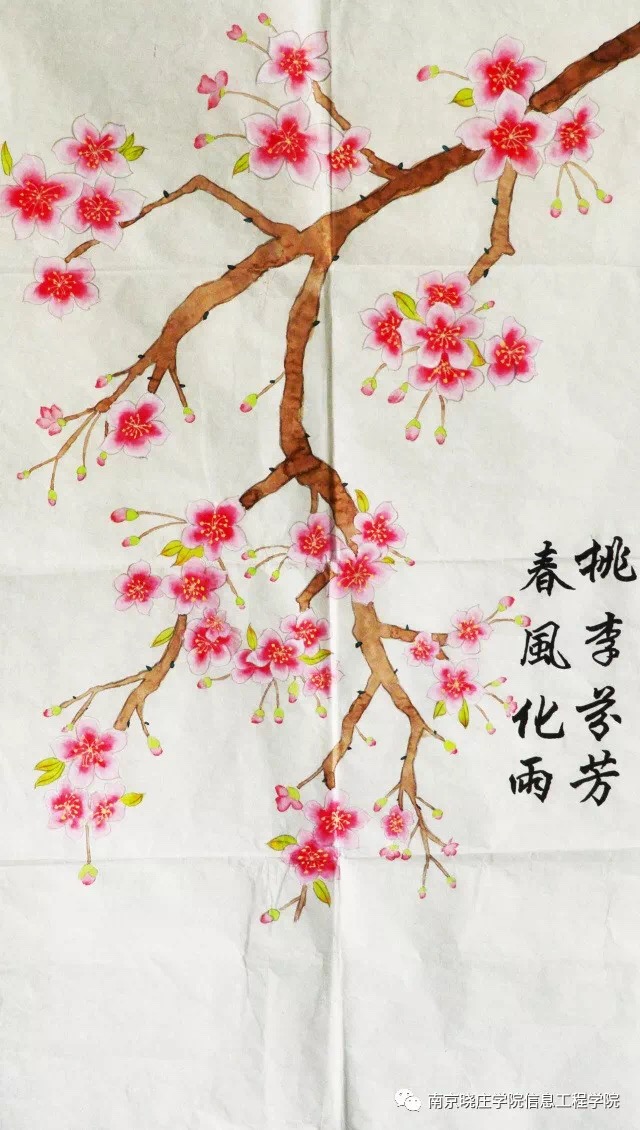 桃李芬芳
春風化雨
南京晓庄学院信息工程学院